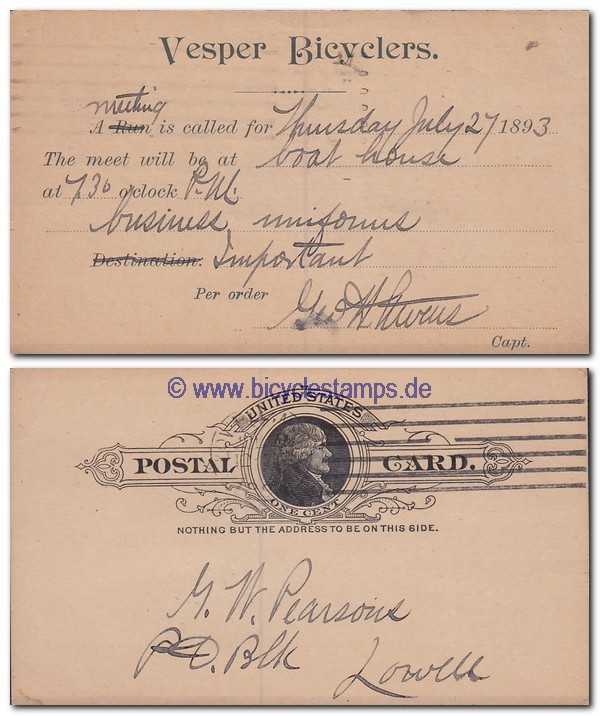 Vesper Bicyclers.
meeting
A Run is called for Thursday July 27 1893
The meet will be at boat house
at 7.30 o'clock P.M.
business, uniforms
Destination: Important
Per order
Geo H Owens
Capt.
© www.bicyclestamps.de
UNITED STATES
POSTAL CARD.
ONE CENT
NOTHING BUT THE ADDRESS TO BE ON THIS SIDE.
G. W. Pearsons
P.O. Blk
Lowell